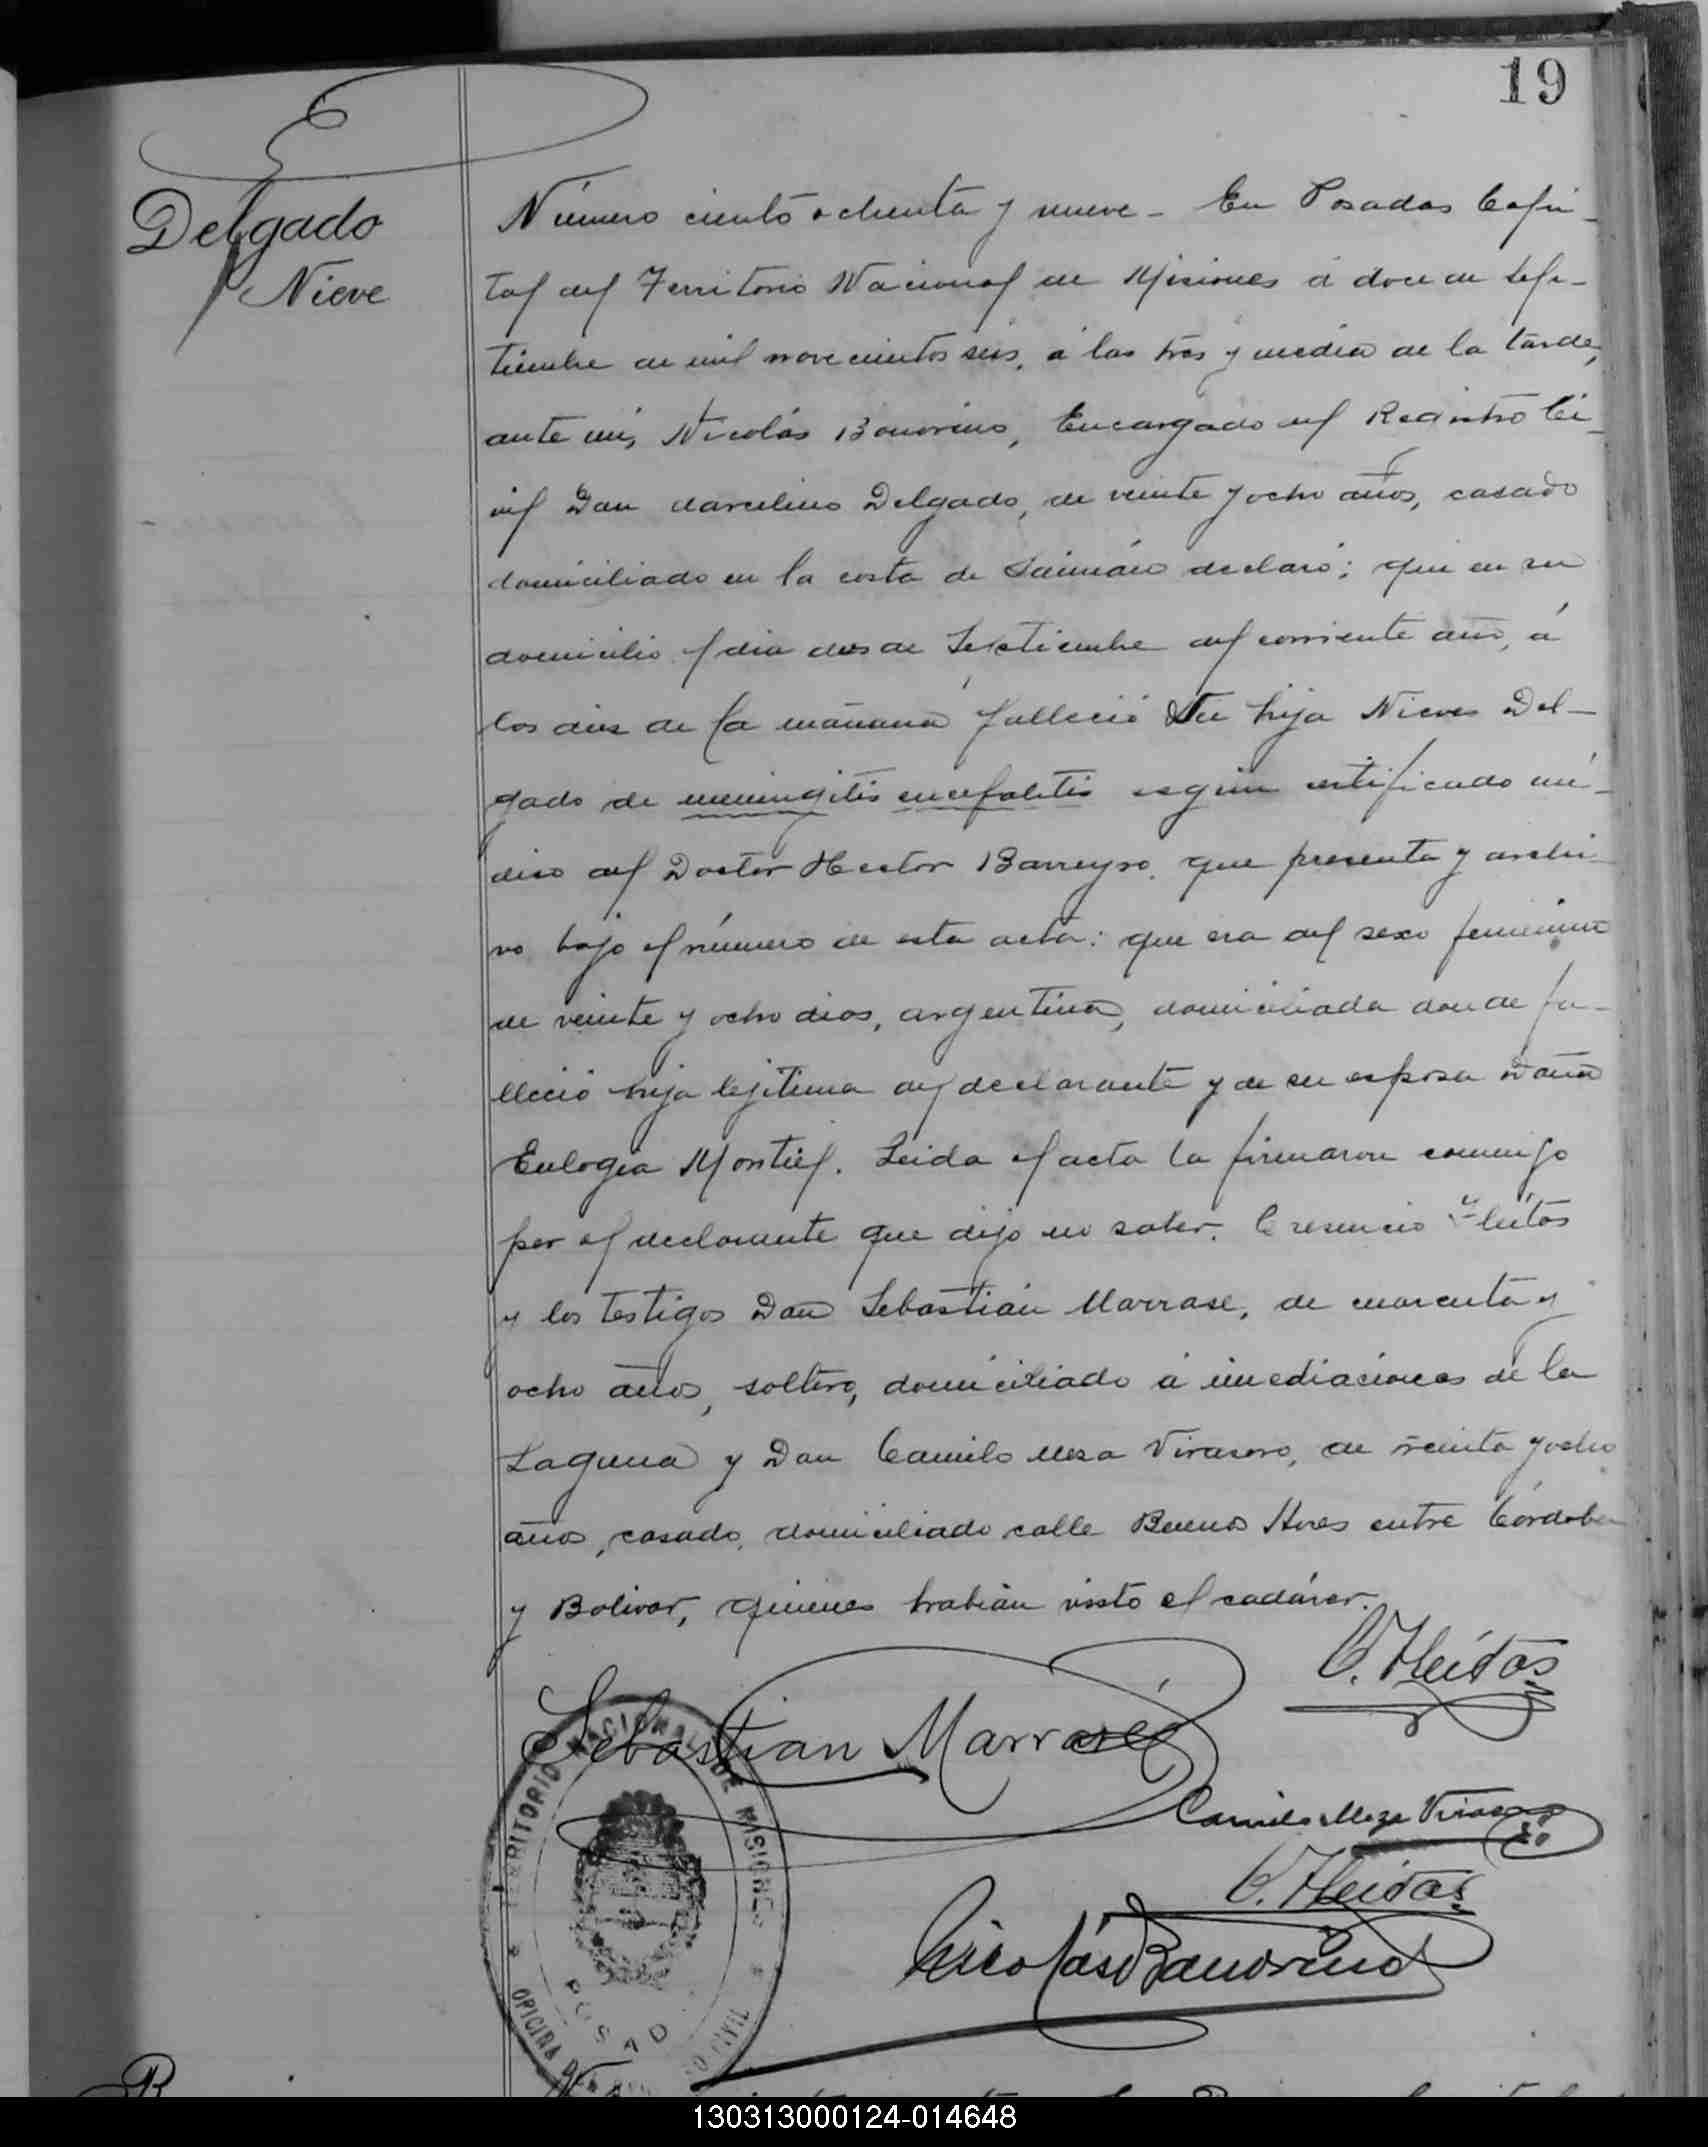 19
Delgado
Nieve
Número ciento ochenta y nueve - En Posadas Capi-
tal del Territorio Nacional de Misiones á doce de Sep-
tiembre de mil novecientos seis, á las tres y media de la tarde,
ante mi, Nicolás Bonorino, Encargado del Registro Ci-
vil Don Marcelino Delgado, de veinte y ocho años, casado
domiciliado en la costa de declaró; que en su
domicilio el dia de Septiembre del corriente año, á
las diez de la mañana falleció su hija Nieves Del-
gado de meningitis encefalitis según certificado mé-
dico del Doctor Hector Barreyro que presenta y archi-
vo bajo el número de esta acta: que era del sexo femenino
de veinte y ocho dias, argentina, domiciliada donde fa-
lleció hija lejitima del declarante y de su esposa Doña
Eulogia Montiel. Leida el acta la firmaron conmigo
por el declarante que dijo no saber, Cresencio Fleitas
y los testigos Don Sebastián Marrase, de cuarenta y
ocho años, soltero, domiciliado á inmediaciones de la
Laguna y Don Camilo Meza Virasoro, de treinta y ocho
años, casado, domiciliado calle Buenos Aires entre Córdoba
y Bolivar, quienes habian visto el cadáver.
C. Fleitas
Sebastian Marrasé
Camilo Meza Virasoro
C. Fleitas
Nicolás Bonorino
TERRITORIO NACIONAL DE MISIONES
OFICINA DEL REGISTRO CIVIL
POSADAS
130313000124-014648